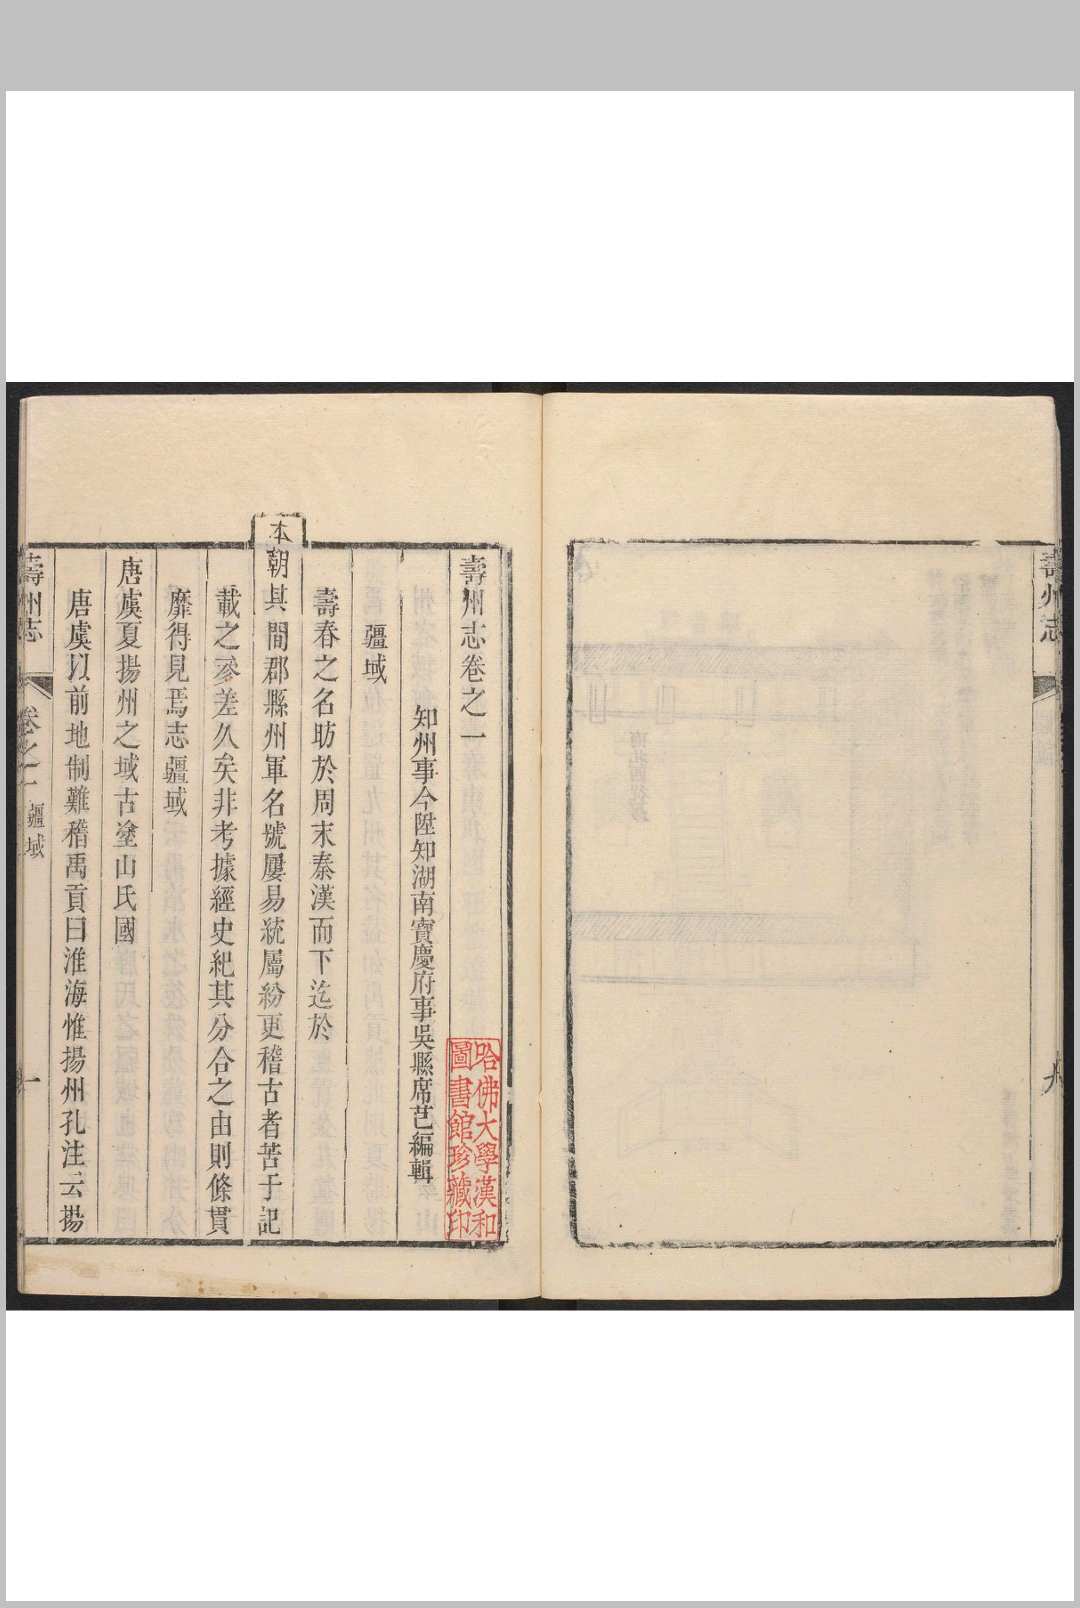 壽州志
九
壽州志卷之一
知州事今陞知湖南寶慶府事吳縣席芑編輯
疆域
壽春之名昉於周末秦漢而下迄於
本朝其間郡縣州軍名號屢易統屬紛更稽古者苦于記
載之參差久矣非考據經史紀其分合之由則條貫
靡得見焉志疆域
唐虞夏揚州之域古塗山氏國
唐虞以前地制難稽禹貢曰淮海惟揚州孔注云揚
壽州志
卷之一
疆域
一
哈佛大學漢和
圖書館珍藏印